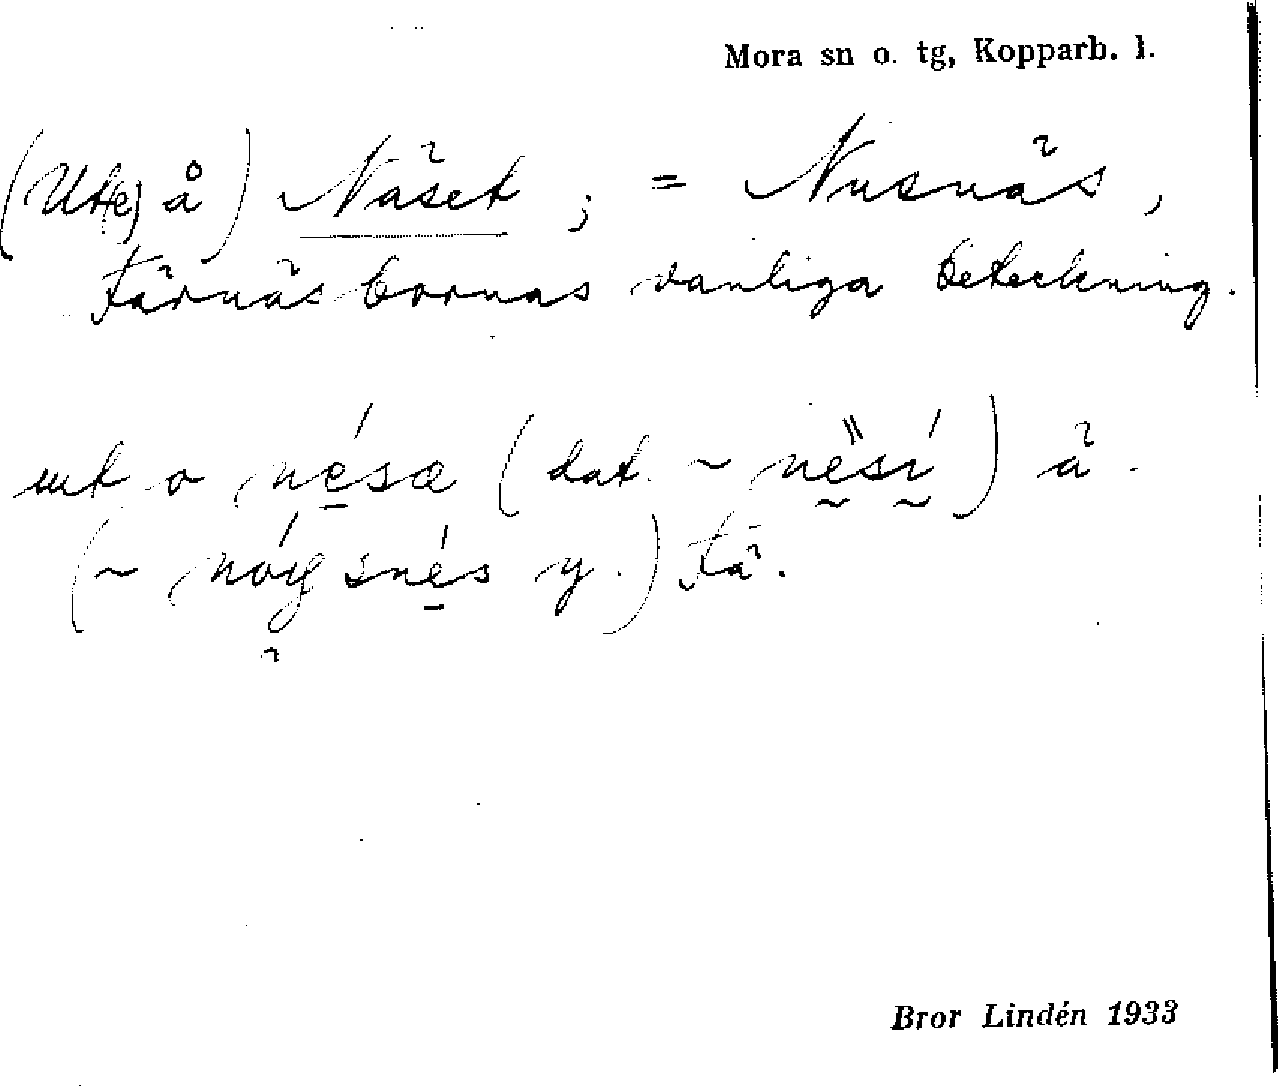 Mora sn o. tg, Kopparb. l.
(Ut(e) å) Näset ; = Nusnäs,
Färnäsbornas vanliga beteckning.
ut o nésæ (dat. ~ nè̈sí) ä.
(~ nóysnés y.) fä.
Bror Lindén 1933